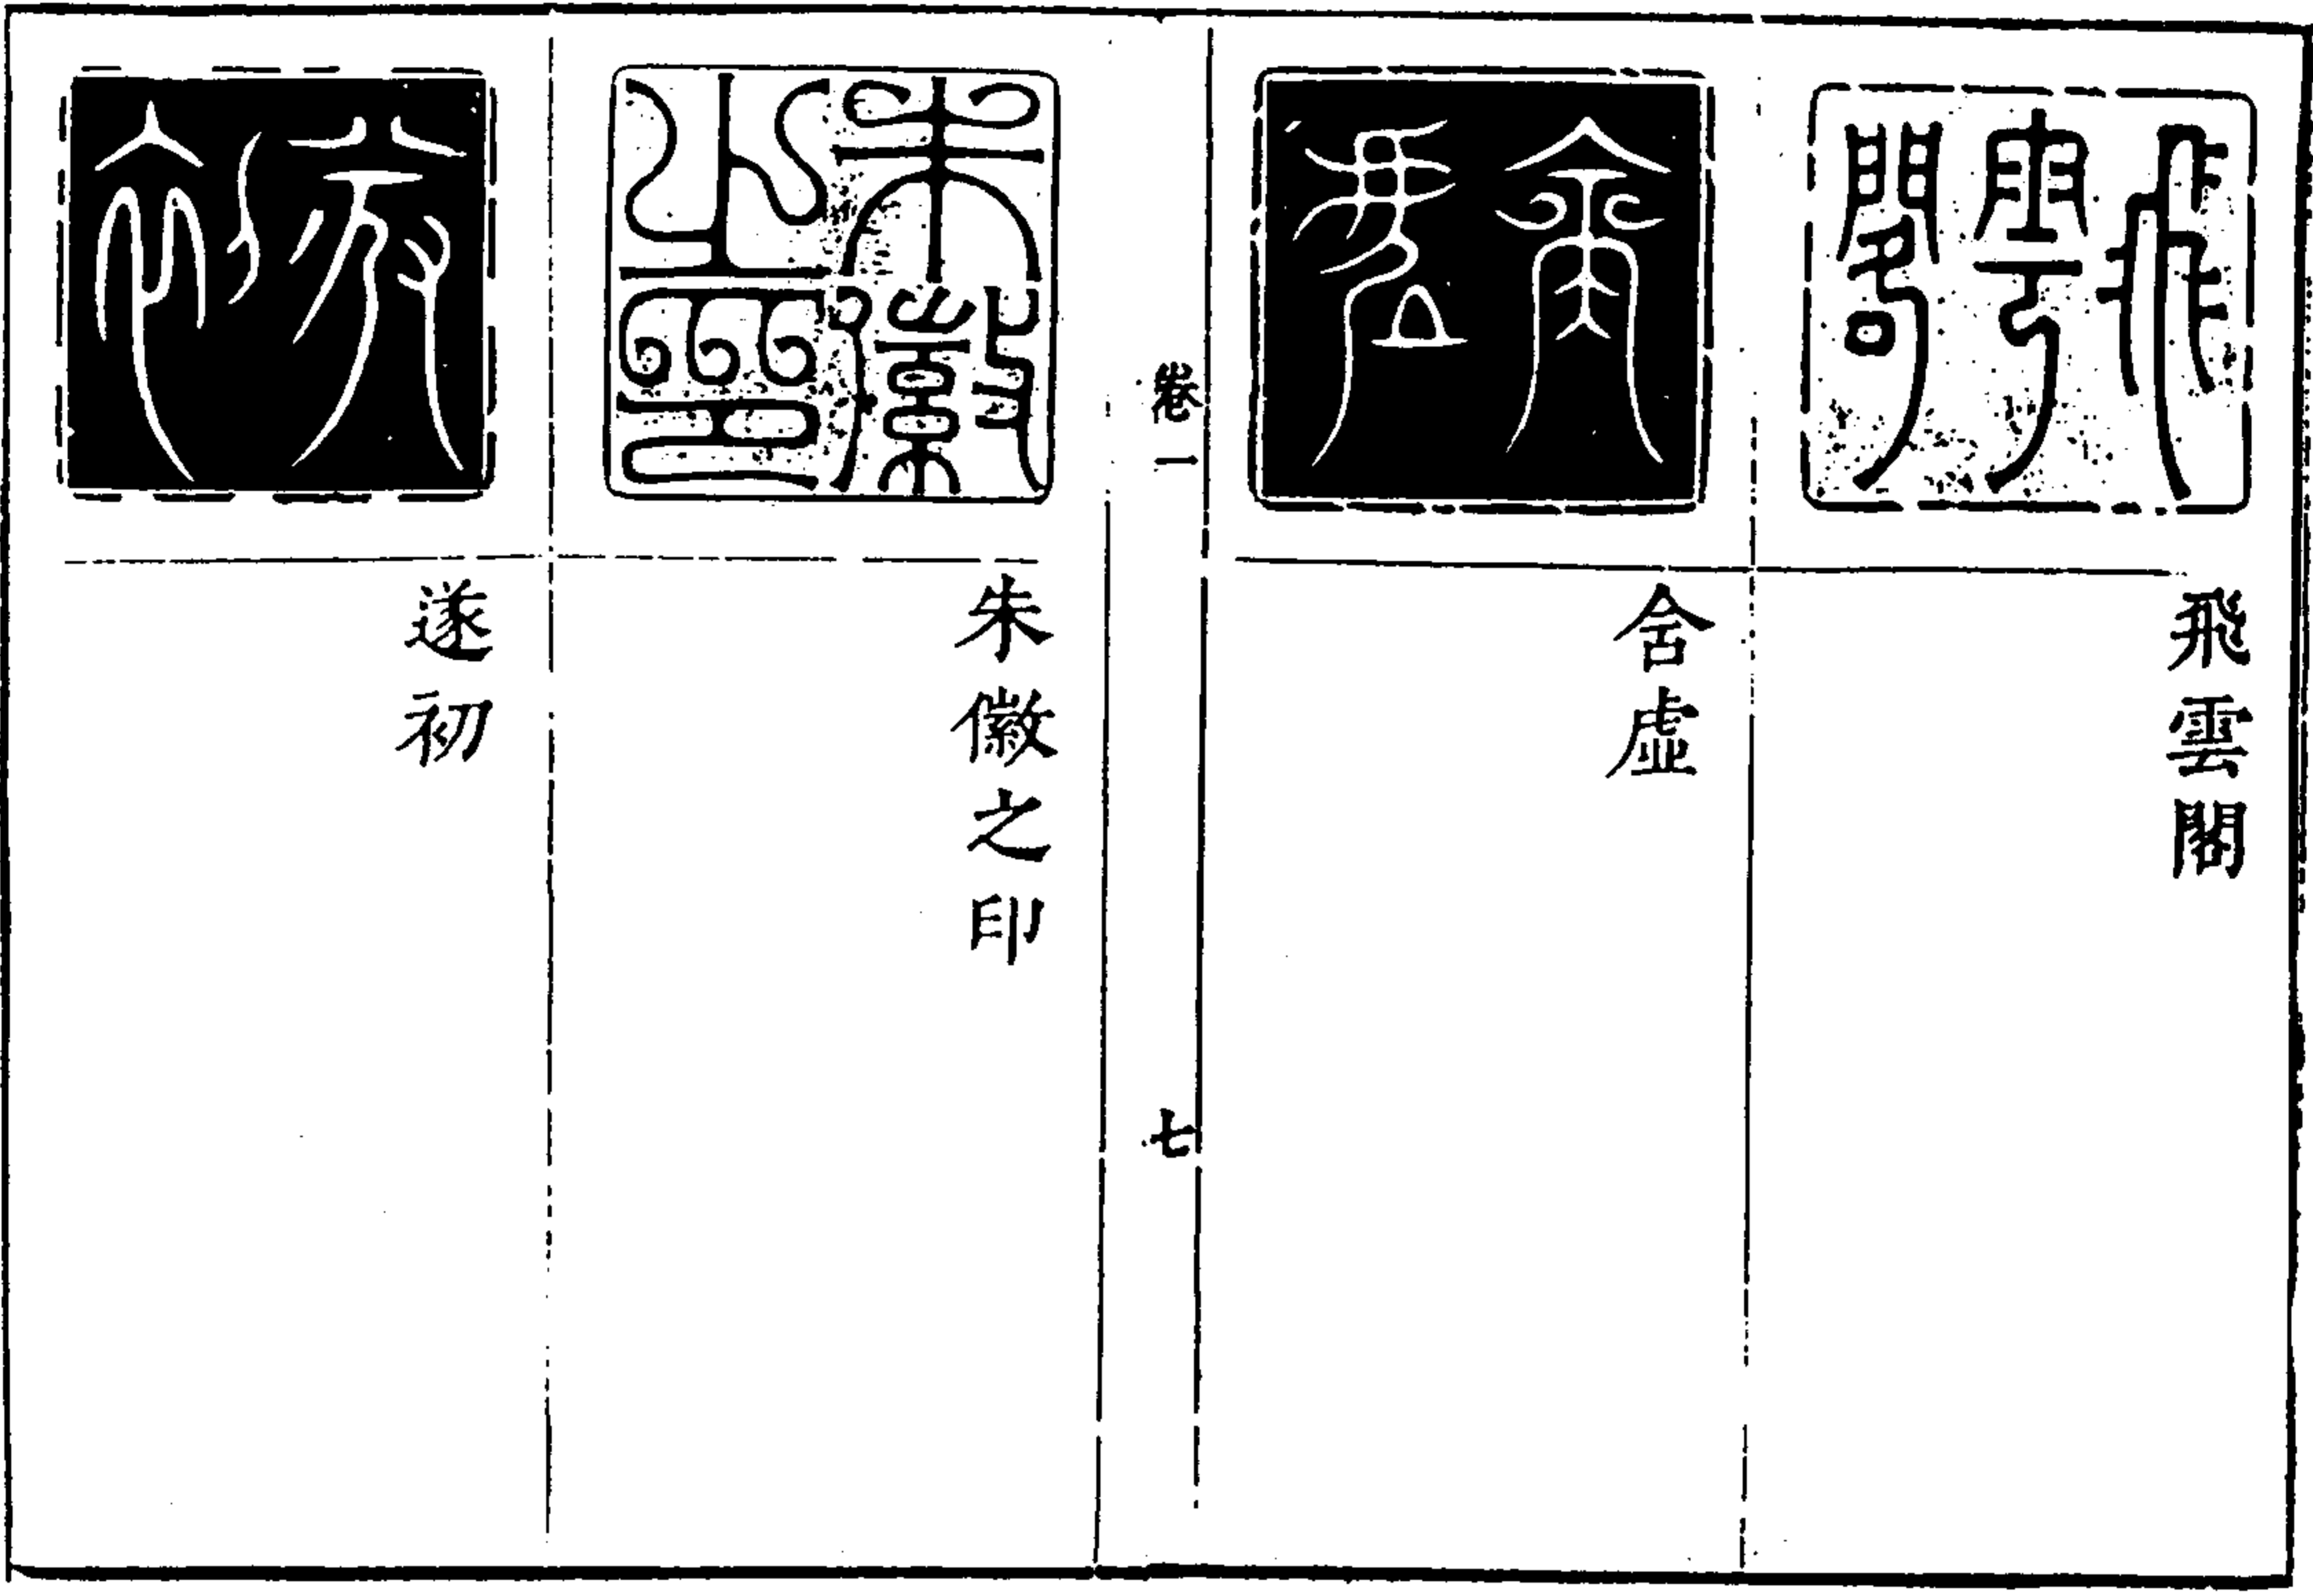 飛雲閣
舍虛
卷一
七
朱徽之印
遂初